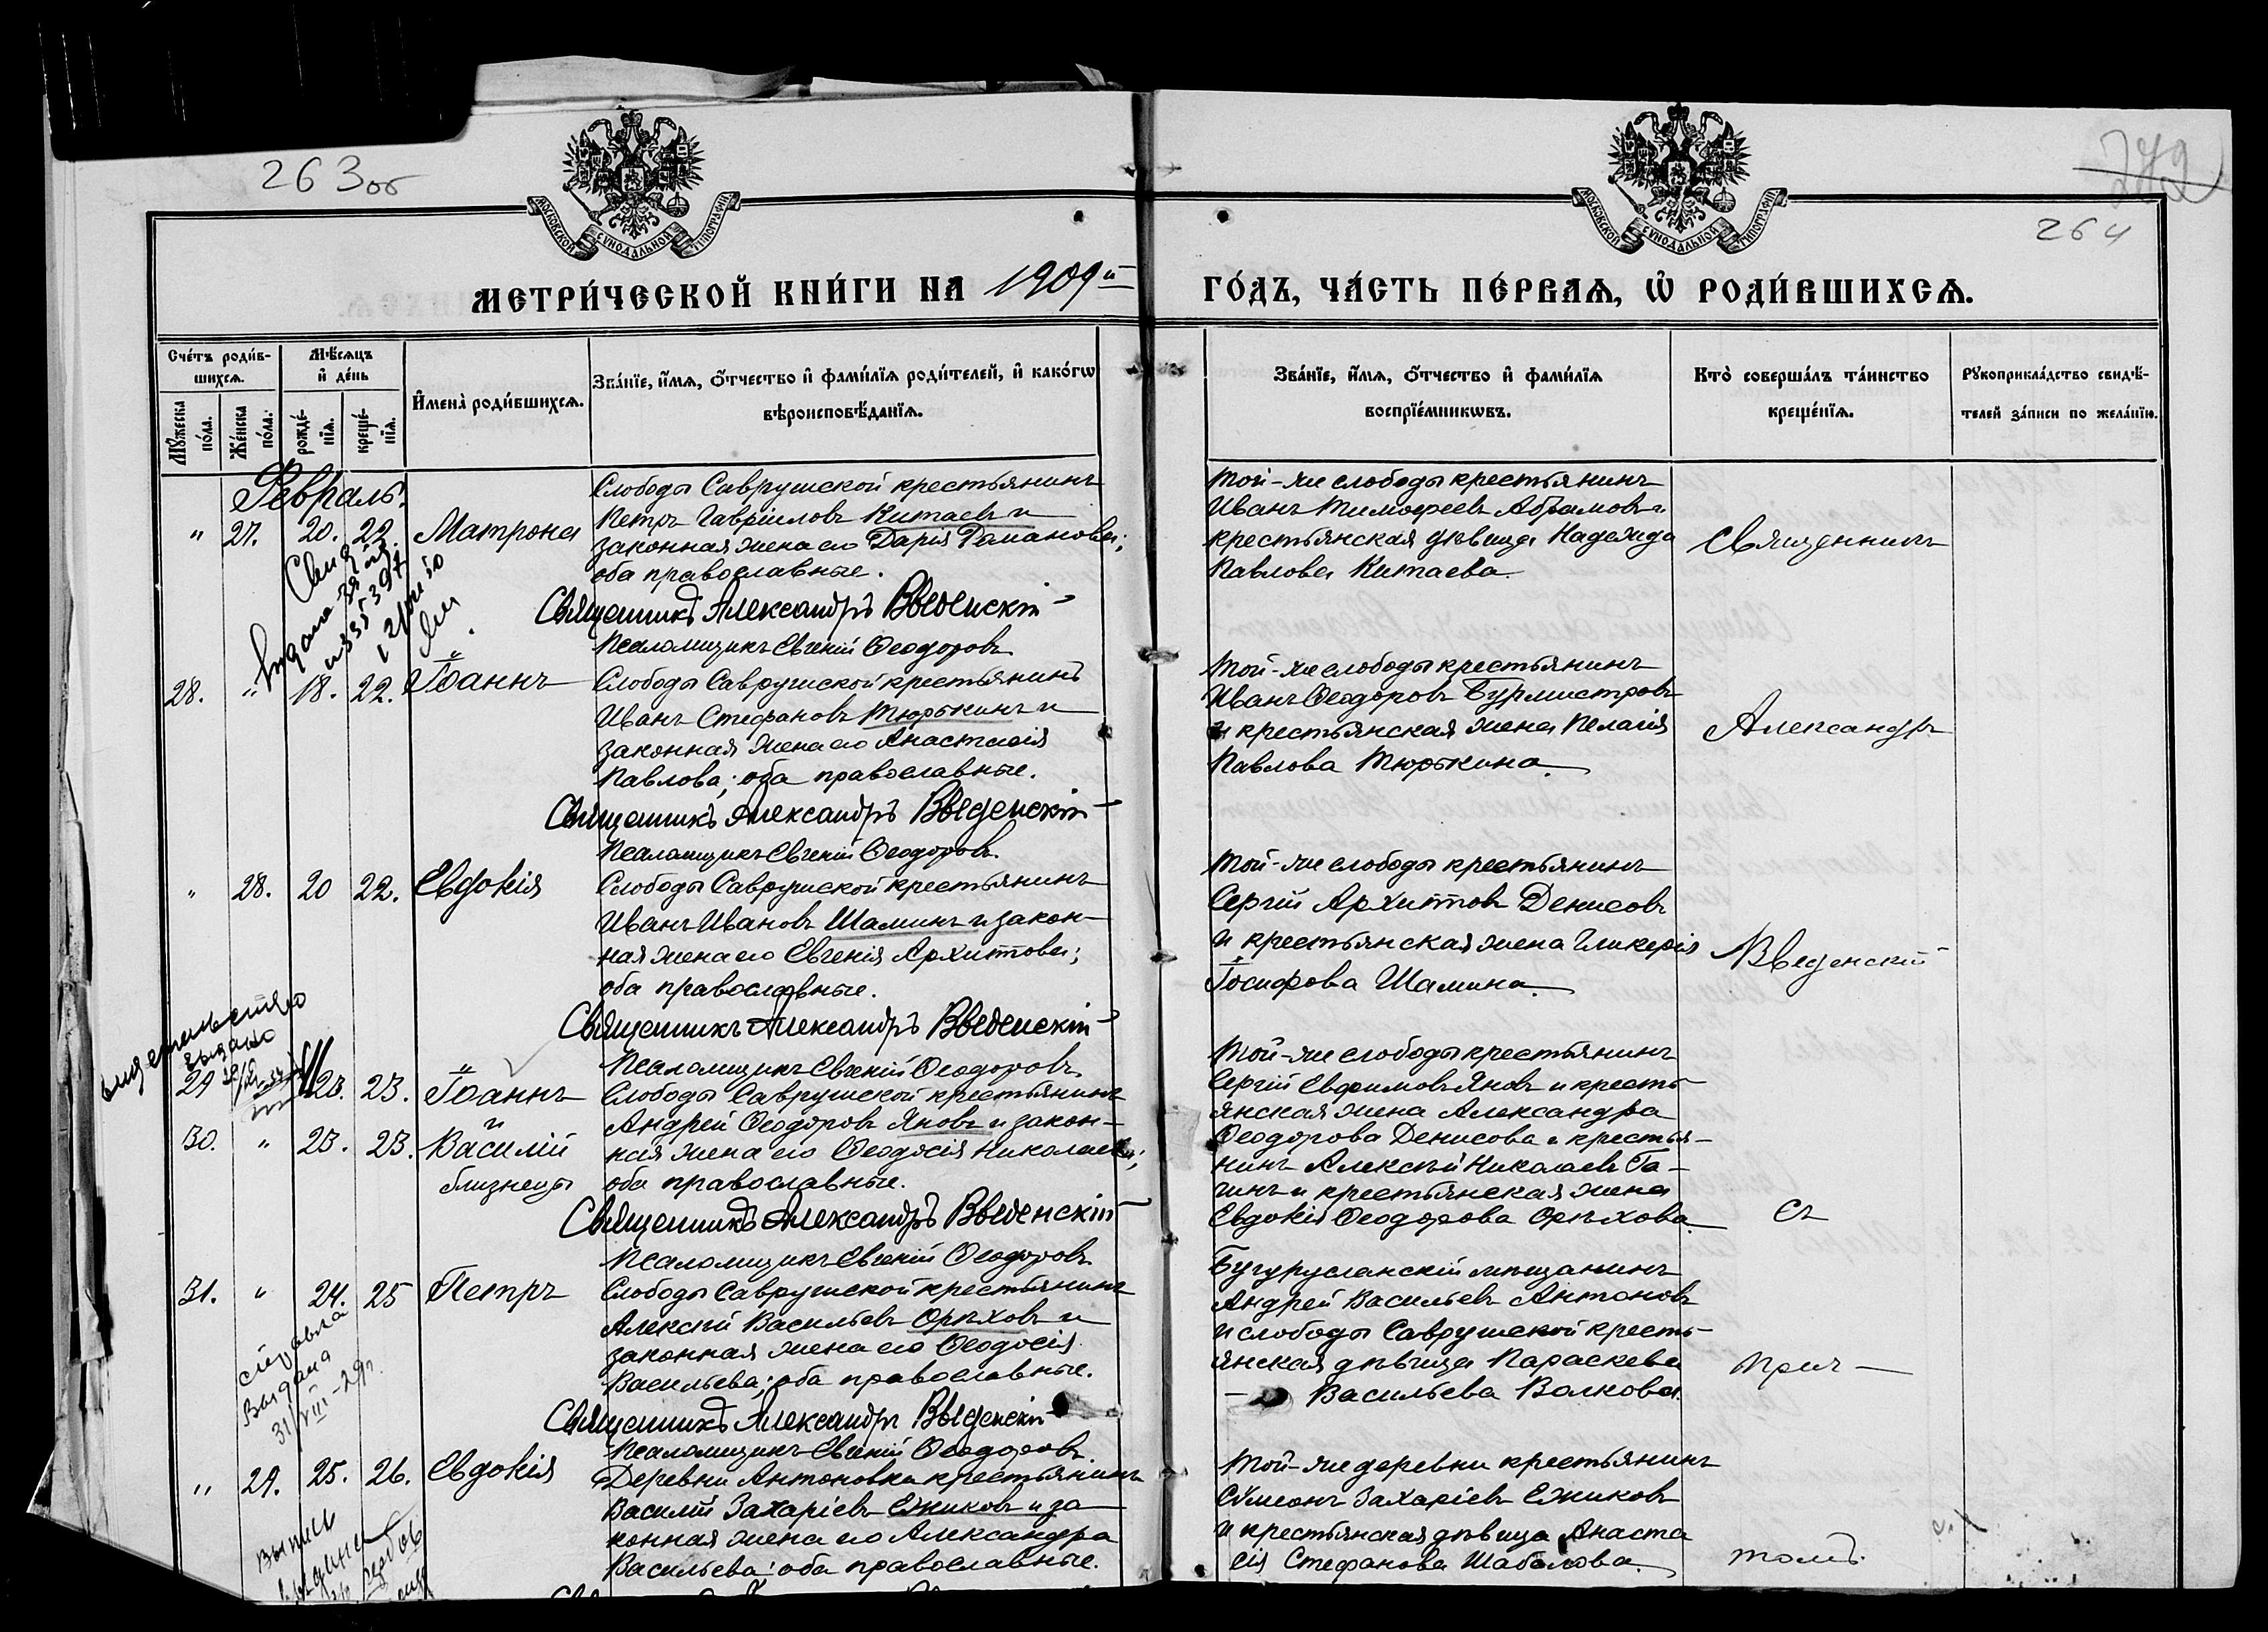 263об
249
264
МОСКОВСКОЙ СѴНОДАЛЬНОЙ ТИПОГРАФІИ
МОСКОВСКОЙ СѴНОДАЛЬНОЙ ТИПОГРАФІИ
МЕТРИ́ЧЕСКОЙ КНИ́ГИ НА 1909й
ГО́ДЪ, ЧА́СТЬ ПЕ́РВАѦ, Ѡ҆ РОДИ́ВШИХСѦ.
Сче́тъ роди́в-
шихсѧ.
Мѣ́сѧцъ
и҆ де́нь
Мꙋ́жеска
по́ла.
Же́нска
по́ла.
рожде́-
нїѧ.
креще́-
нїѧ.
И҆мена̀ роди́вшихсѧ.
Зва́нїе, и҆́мѧ, ѻ҆́тчество и҆ фами́лїѧ роди́телей, и҆ како́гѡ
вѣроисповѣ́данїѧ.
Зва́нїе, и҆́мѧ, ѻ҆́тчество и҆ фами́лїѧ
воспрїе́мникѡвъ.
Кто̀ соверша́лъ та́инство
креще́нїѧ.
Рꙋкоприкла́дство свидѣ́-
телей за́писи по жела́нїю.
Февраль.
" 27. 20. 22. Матрона
Слободы Саврушской крестьянинъ
Петръ Гавріиловъ Китаевъ и
законная жена его Дарія Романова;
оба православные.
Священникъ Александръ Введенскій
Псаломщикъ Евгеній Ѳеодоровъ
Той-же слободы крестьянинъ
Иванъ Тимофеевъ Абрамовъ и
крестьянская дѣвица Надежда
Павлова Китаева.
Священникъ
28. " 18. 22. Іоаннъ
Слободы Саврушской крестьянинъ
Иванъ Стефановъ Тюрькинъ и
законная жена его Анастасія
Павлова; оба православные.
Священникъ Александръ Введенскій
Псаломщикъ Евгеній Ѳеодоровъ
Той-же слободы крестьянинъ
Иванъ Ѳеодоровъ Бурмистровъ
и крестьянская жена Пелагія
Павлова Тюрькина.
Александръ
" 28. 20 22. Евдокія
Слободы Саврушской крестьянинъ
Иванъ Ивановъ Шаминъ и закон-
ная жена его Евгенія Архиппова;
оба православные.
Священникъ Александръ Введенскій
Псаломщикъ Евгеній Ѳеодоровъ
Той-же слободы крестьянинъ
Сергій Архипповъ Денисовъ
и крестьянская жена Гликерія
Іосифова Шамина.
Введенскій
выдано
29 23. 23. Іоаннъ
и
30. " 23. 23. Василій
близнецы
Слободы Саврушской крестьянинъ
Андрей Ѳеодоровъ Яновъ и закон-
ная жена его Ѳеодосія Николаева;
оба православные.
Священникъ Александръ Введенскій
Псаломщикъ Евгеній Ѳеодоровъ
Той-же слободы крестьянинъ
Сергій Евфимовъ Яновъ и кресть-
янская жена Александра
Ѳеодорова Денисова и крестья-
нинъ Алексѣй Николаевъ Га-
гинъ и крестьянская жена
Евдокія Ѳеодорова Орѣхова
съ
31. " 24. 25 Петръ
справка
выдана
31/VIII-29г.
Слободы Саврушской крестьянинъ
Алексѣй Васильевъ Орѣховъ и
законная жена его Ѳеодосія
Васильева; оба православные.
Священникъ Александръ Введенскій
Псаломщикъ Евгеній Ѳеодоровъ
Бугурусланскій мѣщанинъ
Андрей Васильевъ Антоновъ
и слободы Саврушской кресть-
янская дѣвица Параскева
Васильева Волкова.
прич-
" 29. 25. 26. Евдокія
Деревни Антоновки крестьянинъ
Василій Захаріевъ Ежиковъ и за
конная жена его Александра
Васильева; оба православные.
Той-же деревни крестьянинъ
Сѵмеонъ Захаріевъ Ежиковъ
и крестьянская дѣвица Анаста
сія Стефанова Шабалова.
томъ.